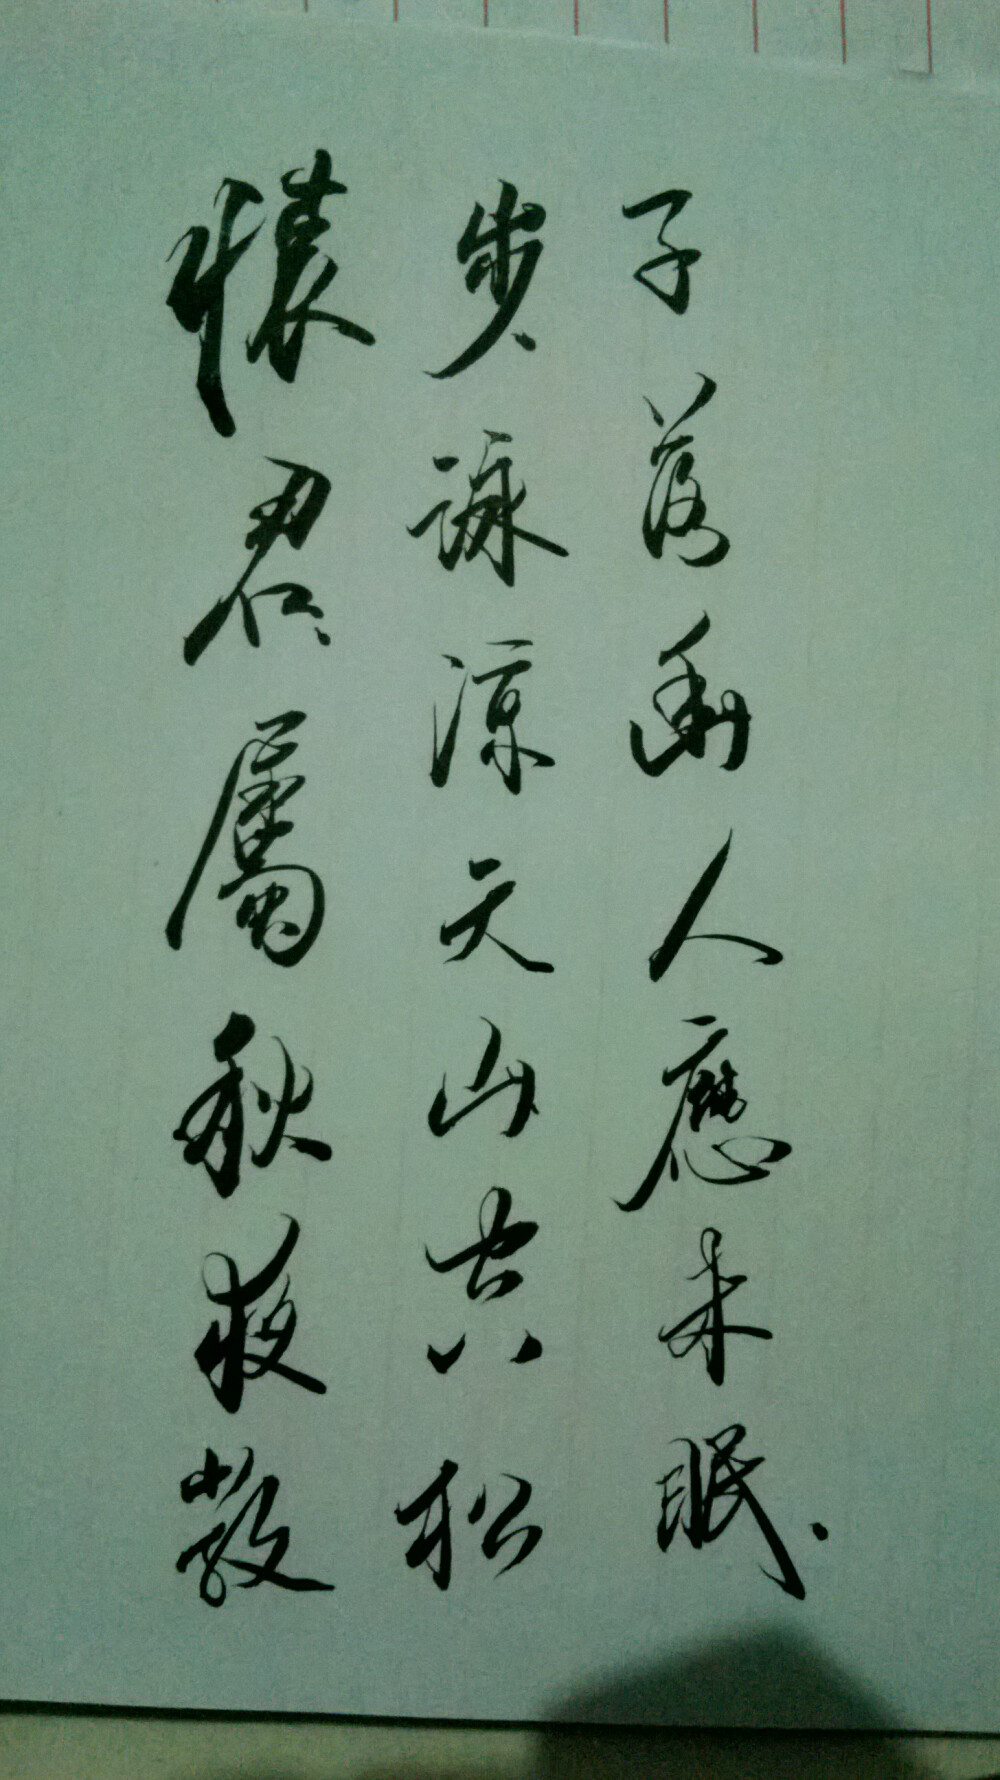 懷君屬秋夜散
步詠涼天山空松
子落幽人應未眠.